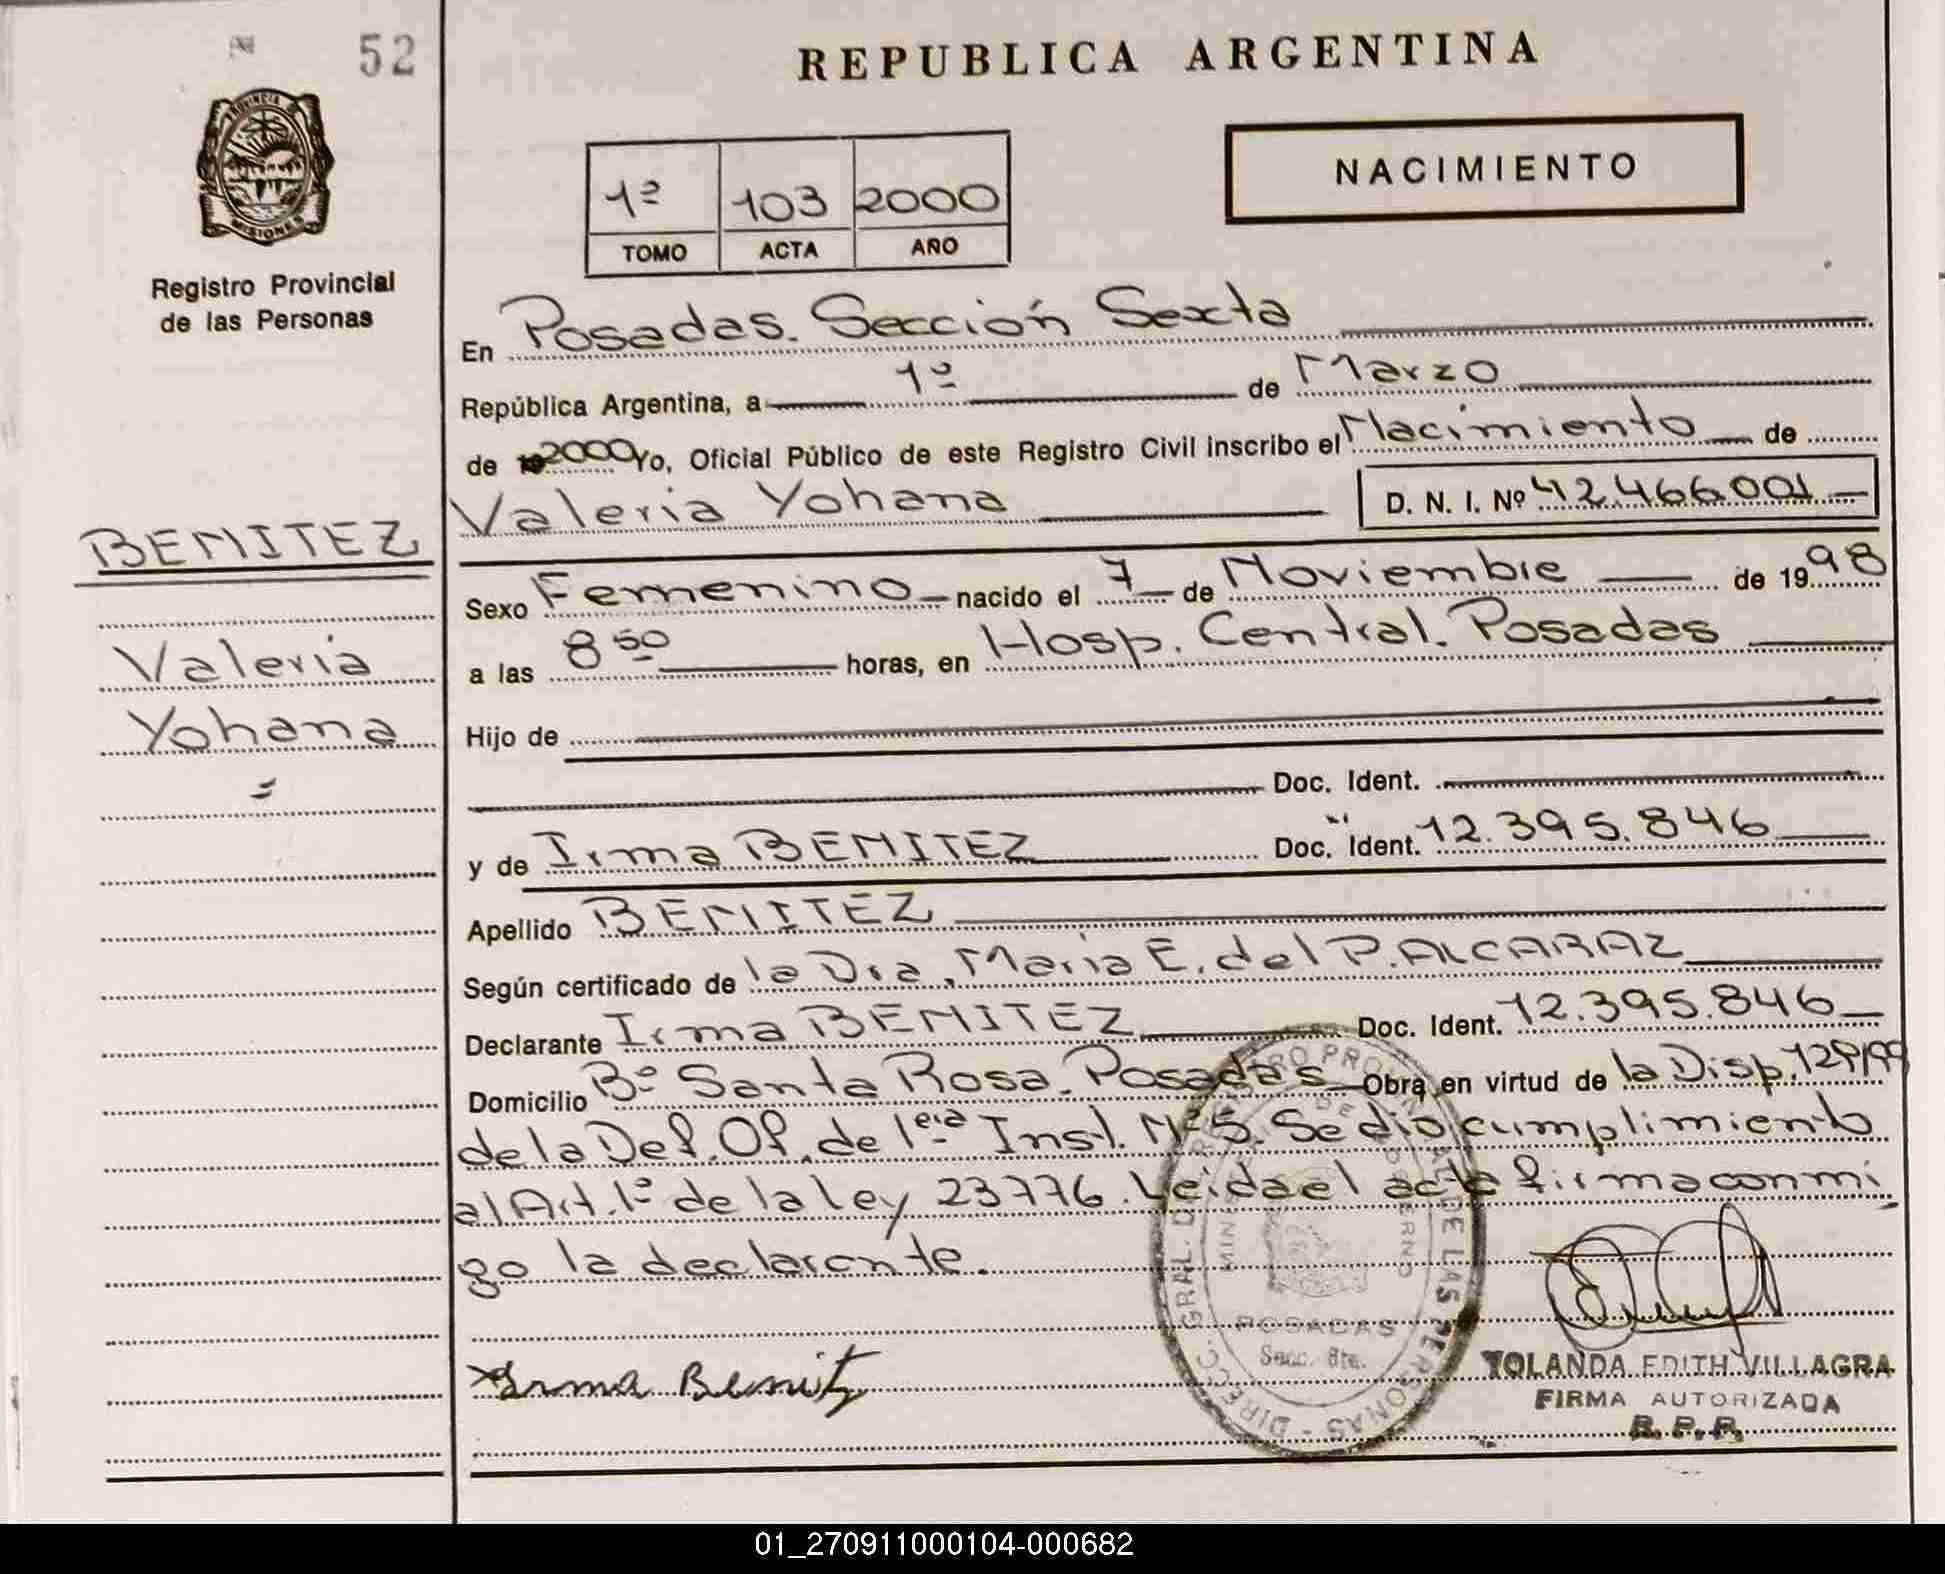 Nº 52
REPUBLICA ARGENTINA
PROVINCIA DE
MISIONES
Registro Provincial
de las Personas
1º 103 2000
TOMO ACTA AÑO
NACIMIENTO
En Posadas. Sección Sexta
República Argentina, a 1º de Marzo
de 2000 Yo, Oficial Público de este Registro Civil inscribo el Nacimiento de
Valeria Yohana D. N. I. Nº 42.466.001
BENITEZ
Valeria
Yohana
Sexo Femenino nacido el 7 de Noviembre de 1998
a las 8 50 horas, en Hosp. Central. Posadas
Hijo de
Doc. Ident.
y de Irma BENITEZ Doc. Ident. 12.395.846
Apellido BENITEZ
Según certificado de la Dra. María E. del P. ALCARAZ
Declarante Irma BENITEZ Doc. Ident. 12.395.846
Domicilio Bº Santa Rosa. Posadas Obra en virtud de la Disp. 129/99
de la Def. Of. de 1era Inst. Nº 5. Se dio cumplimiento
al Art. 1º de la Ley 23776. Leida el acta firma conmi
go la declarante.
Irma Benitz
DIRECC. GRAL. DE LAS PERSONAS
POSADAS
Secc. 6ta.
YOLANDA EDITH VILLAGRA
FIRMA AUTORIZADA
R. P. P.
01_270911000104-000682